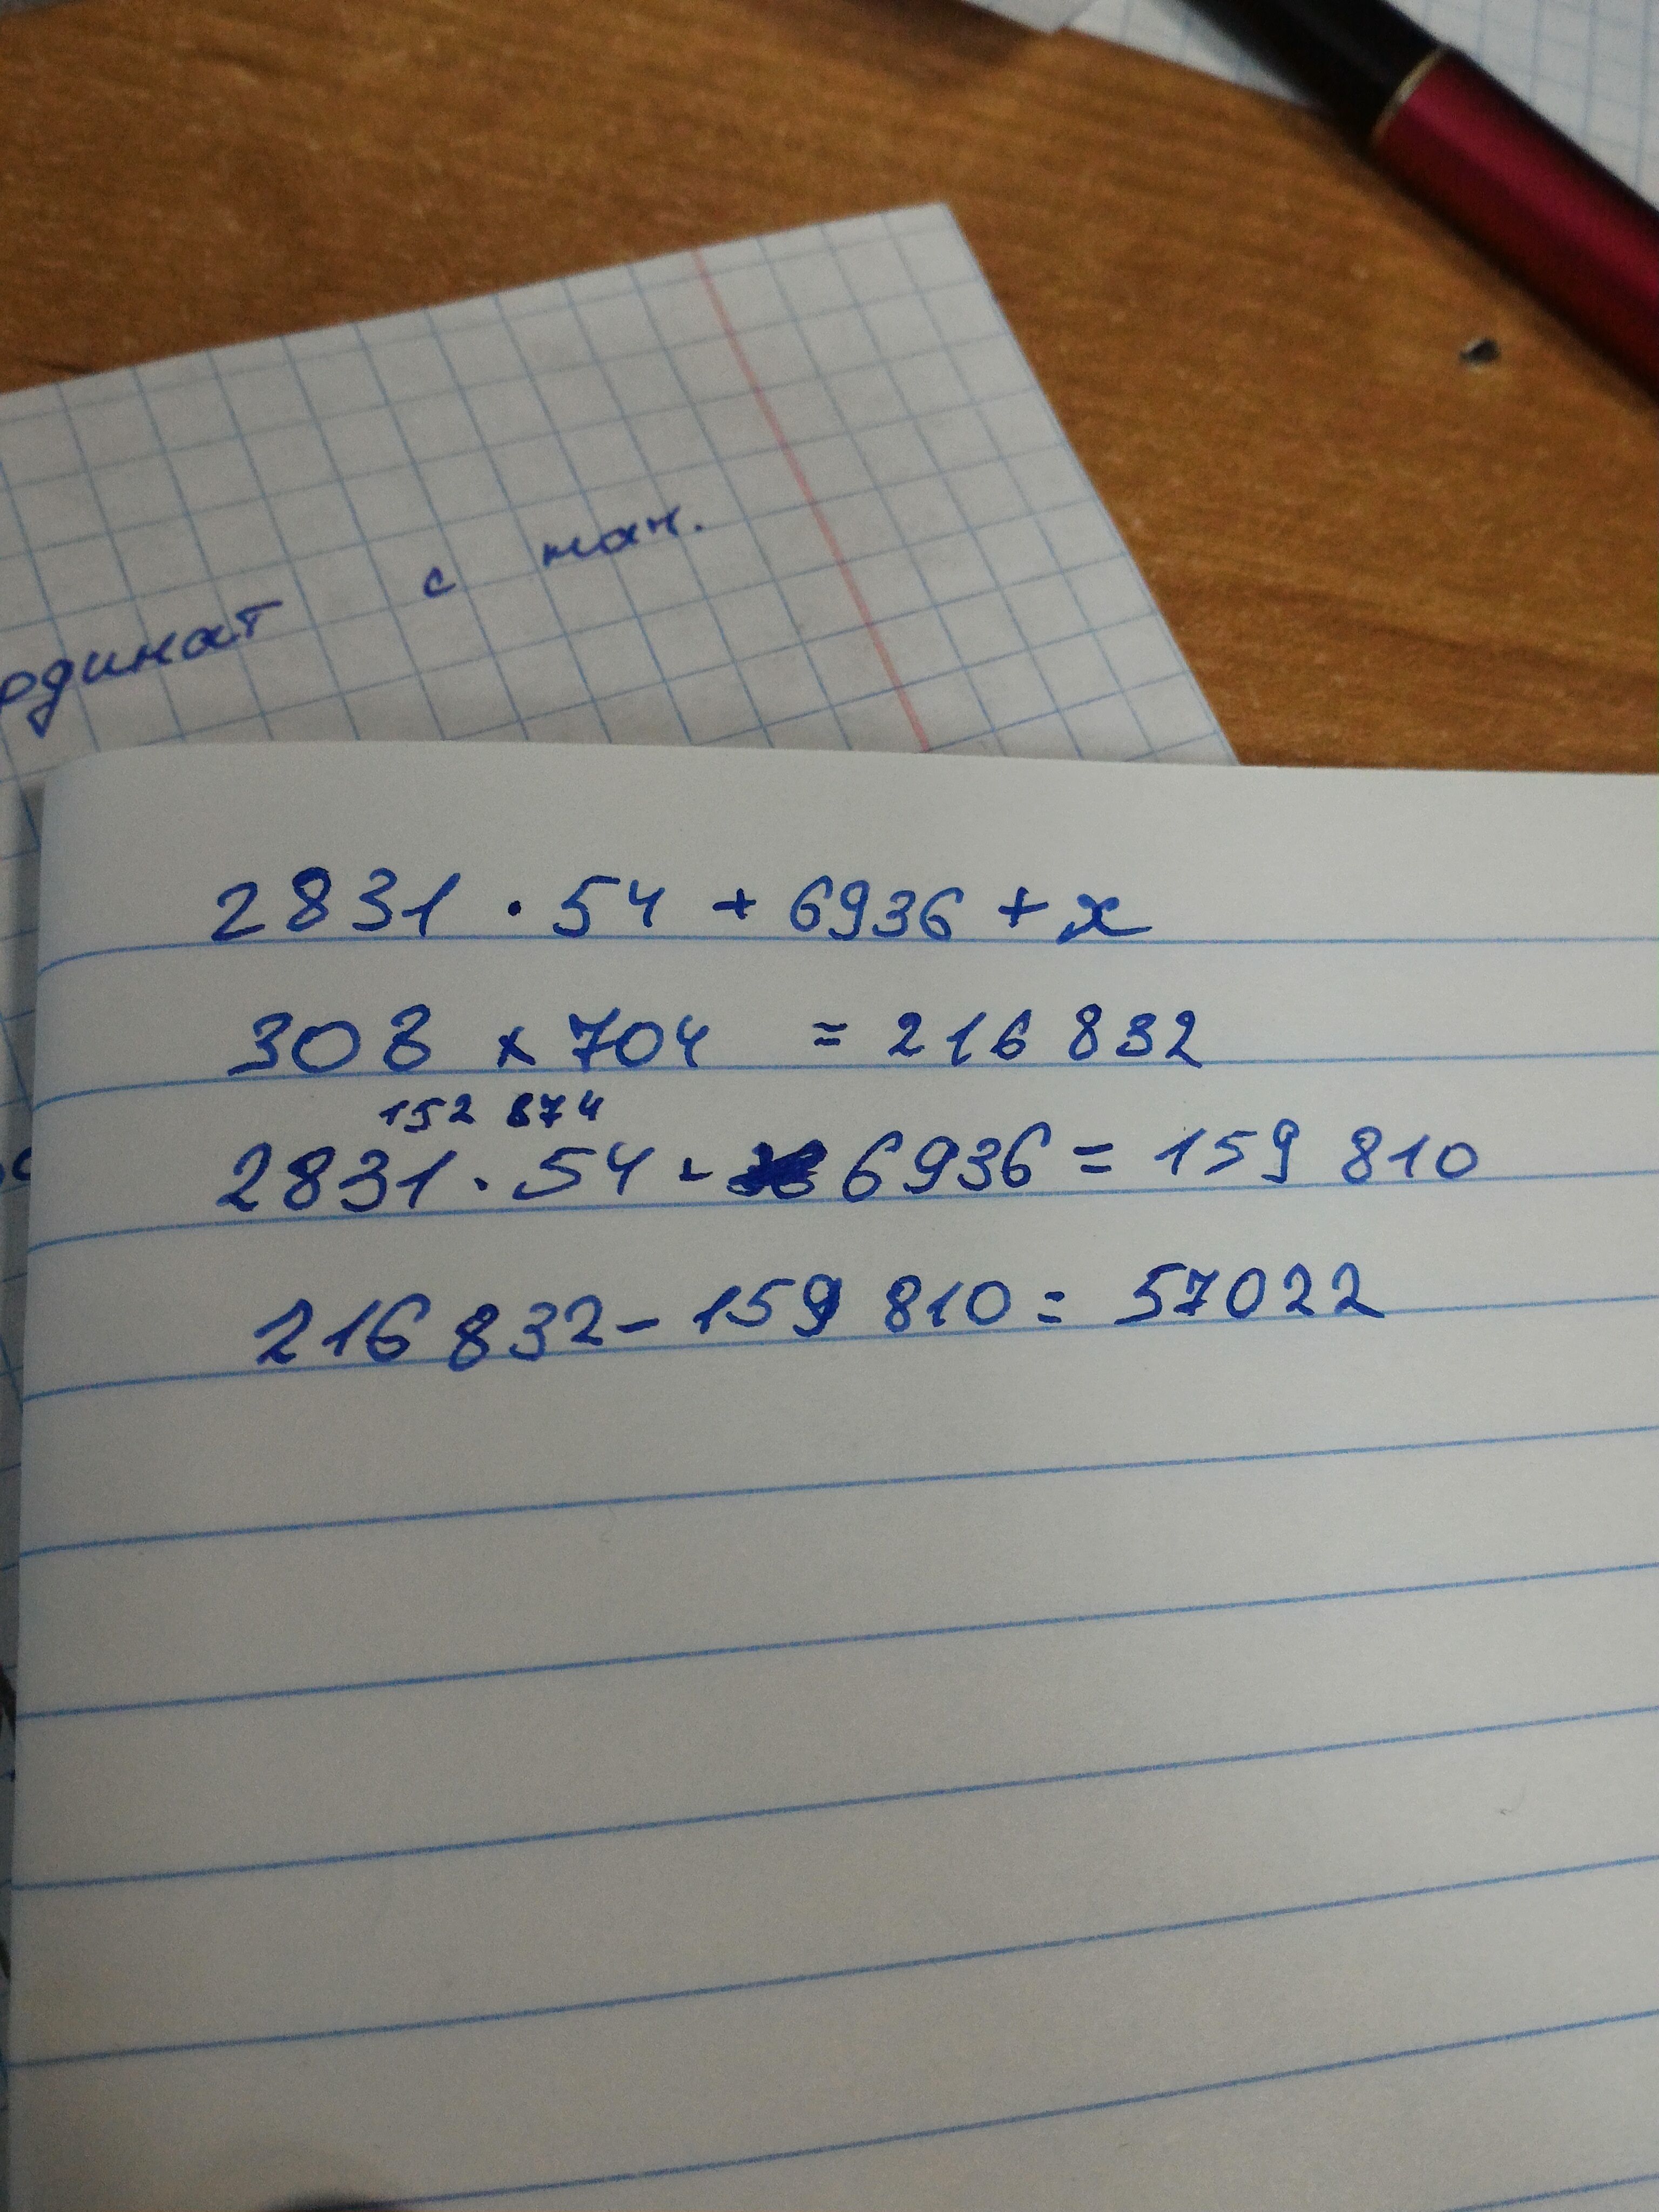 ординат с нач.
2831 · 54 + 6936 + x
308 × 704 = 216 832
152 874
2831 · 54 - 6936 = 159 810
216 832 - 159 810 = 57022